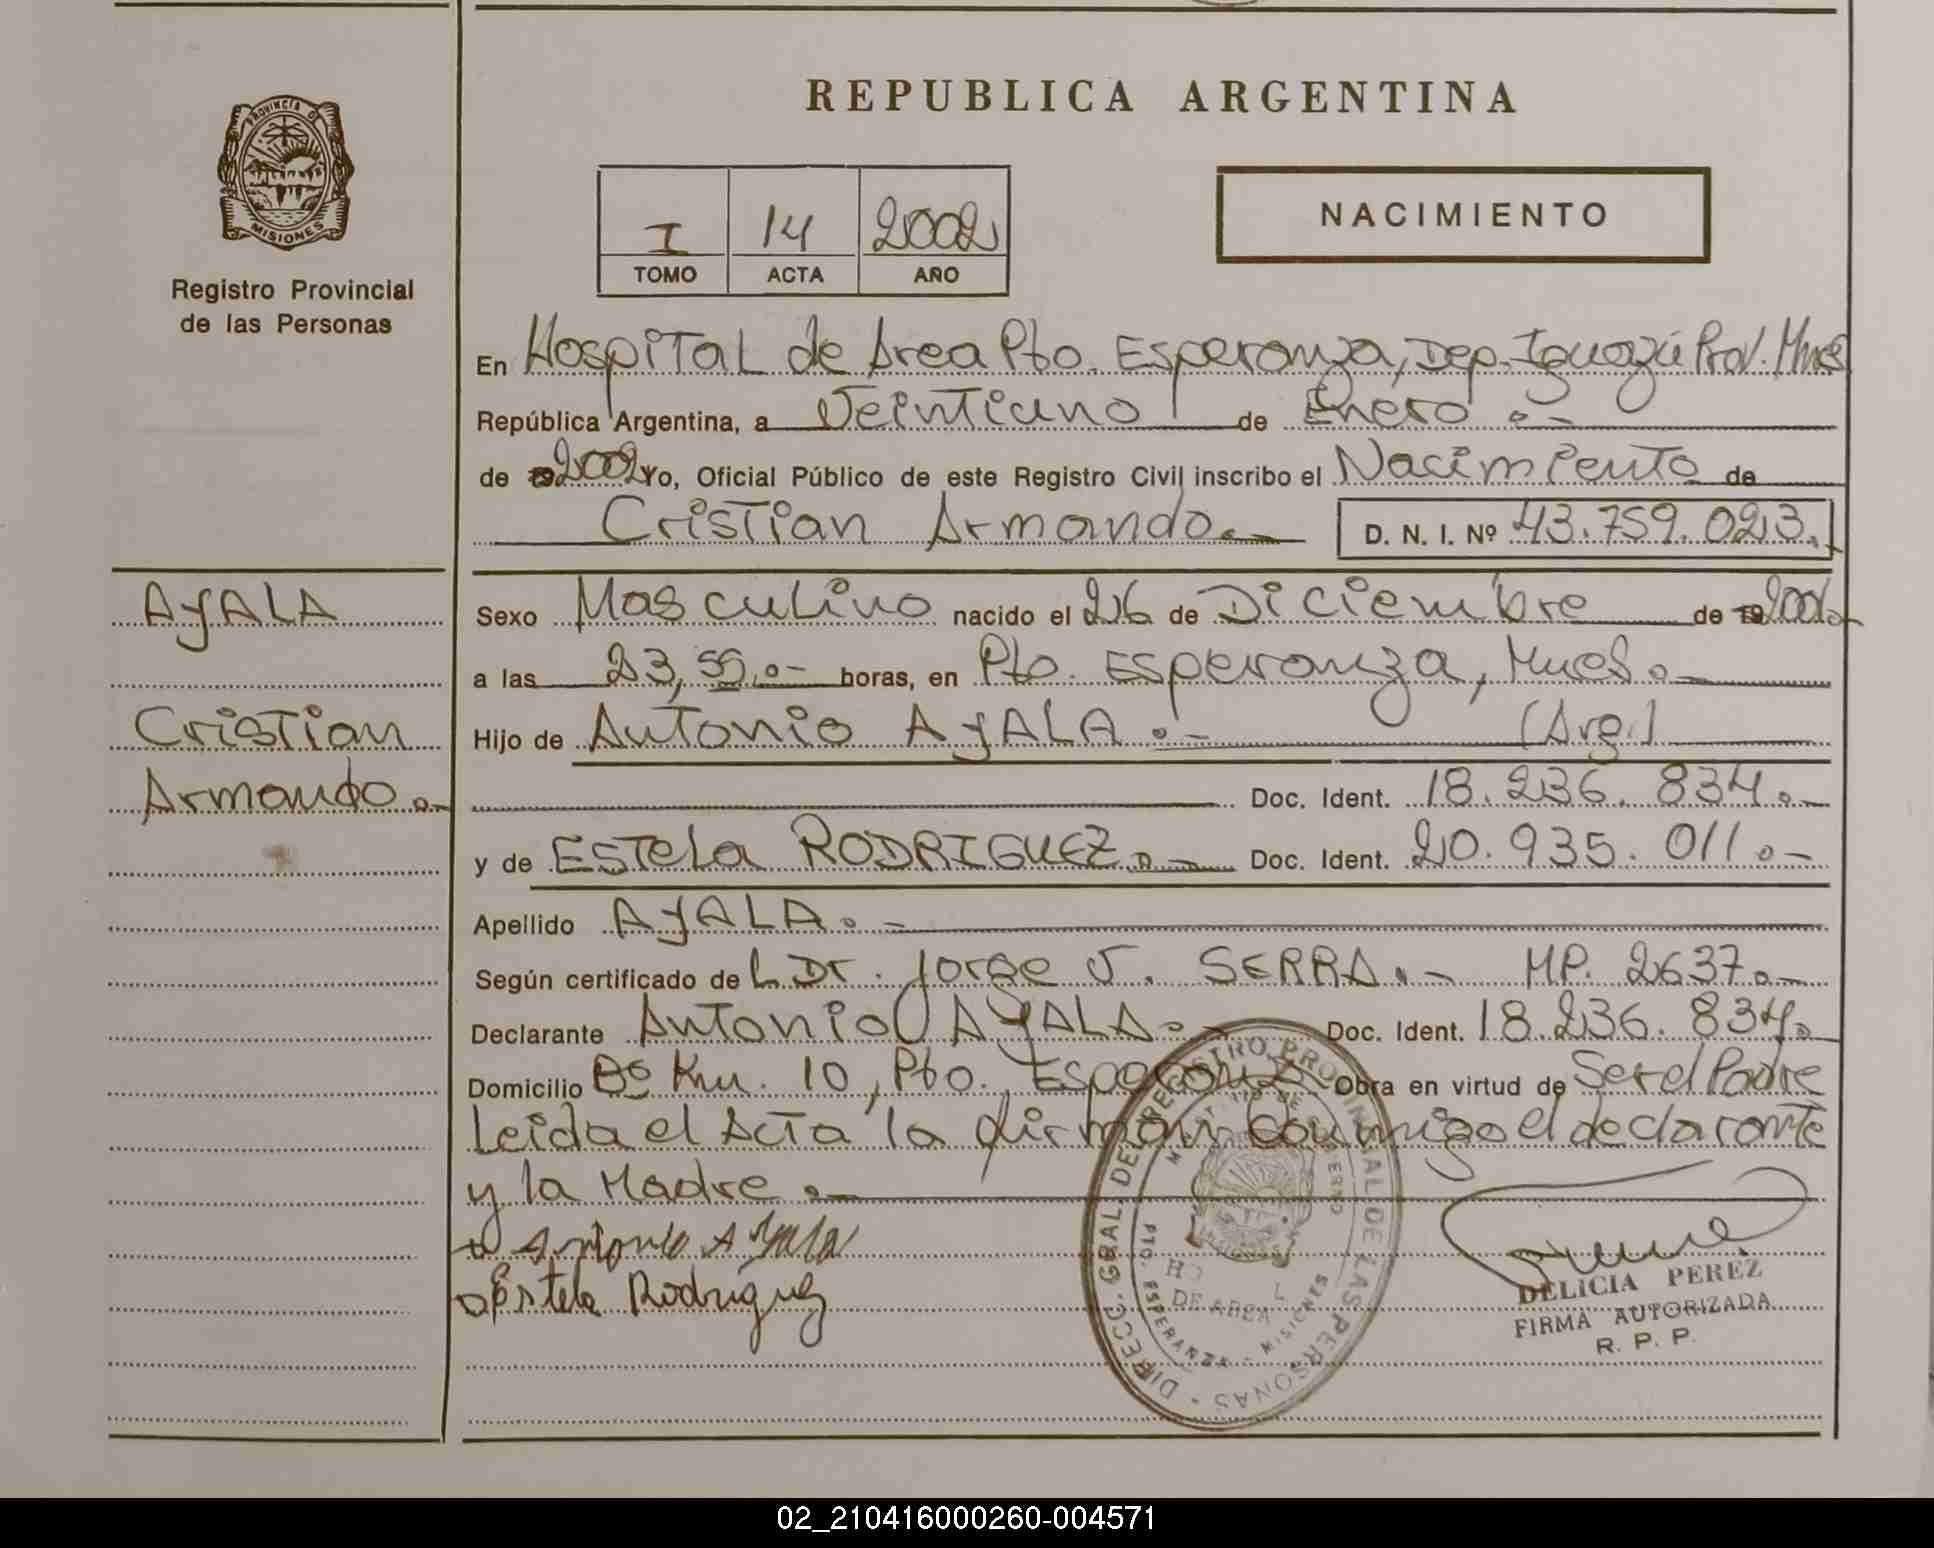 REPUBLICA ARGENTINA
PROVINCIA DE
MISIONES
Registro Provincial
de las Personas
I 14 2002
TOMO ACTA AÑO
NACIMIENTO
En Hospital de Area Pto. Esperanza, Dep. Iguazú Prov. Mnes
República Argentina, a Veintiuno de Enero .-
de 2002 Yo, Oficial Público de este Registro Civil inscribo el Nacimiento de
Cristian Armando.- D. N. I. Nº 43.759.023.-
AYALA
Cristian
Armando.-
Sexo Masculino nacido el 26 de Diciembre de 2001.-
a las 23,55.- horas, en Pto. Esperanza, Mnes.-
Hijo de Antonio AYALA.- (Arg.)
Doc. Ident. 18.236.834.-
y de Estela RODRIGUEZ.- Doc. Ident. 20.935.011.-
Apellido AYALA.-
Según certificado de L. Dr. Jorge J. SERRA.- MP. 2637.-
Declarante Antonio AYALA.- Doc. Ident. 18.236.834.-
Domicilio Bº Km. 10, Pto. Esperanza Obra en virtud de Ser el Padre
Leida el Acta la firman conmigo el declarante
y la Madre.-
Antonio Ayala
Estela Rodriguez
DIRECC. GRAL. DEL REGISTRO PROVINCIAL DE LAS PERSONAS
PTO. ESPERANZA - MISIONES
DE AREA
DELICIA PEREZ
FIRMA AUTORIZADA
R. P. P.
02_210416000260-004571